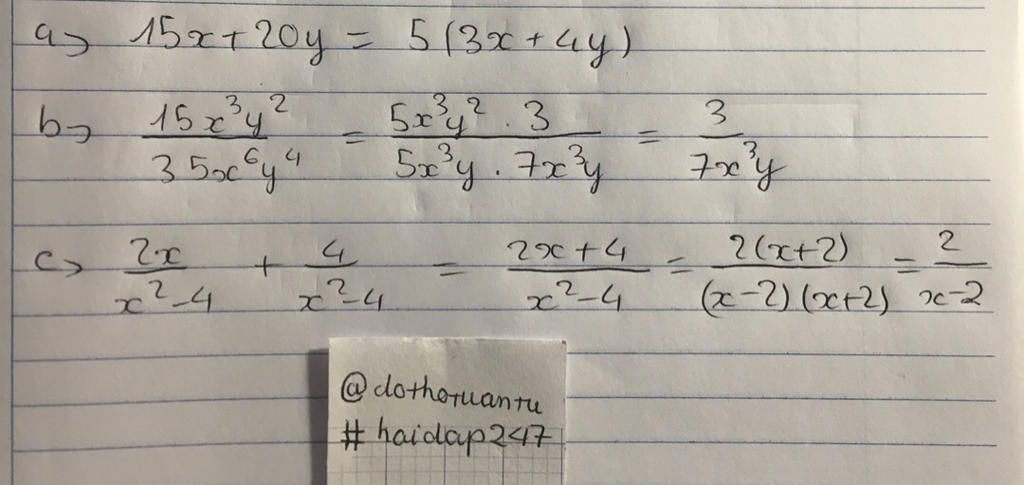 a) 15x+20y = 5(3x+4y)
b) \frac{15x^3y^2}{35x^6y^4} = \frac{5x^3y^2 . 3}{5x^3y . 7x^3y} = \frac{3}{7x^3y}
c) \frac{2x}{x^2-4} + \frac{4}{x^2-4} = \frac{2x+4}{x^2-4} = \frac{2(x+2)}{(x-2)(x+2)} = \frac{2}{x-2}
@dothotuantu
# haidap247